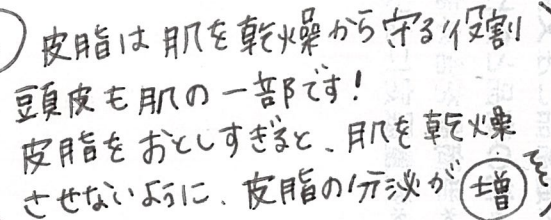 皮脂は肌を乾燥から守る役割
頭皮も肌の一部です!
皮脂をおとしすぎると、肌を乾燥
させないように、皮脂の分泌が増